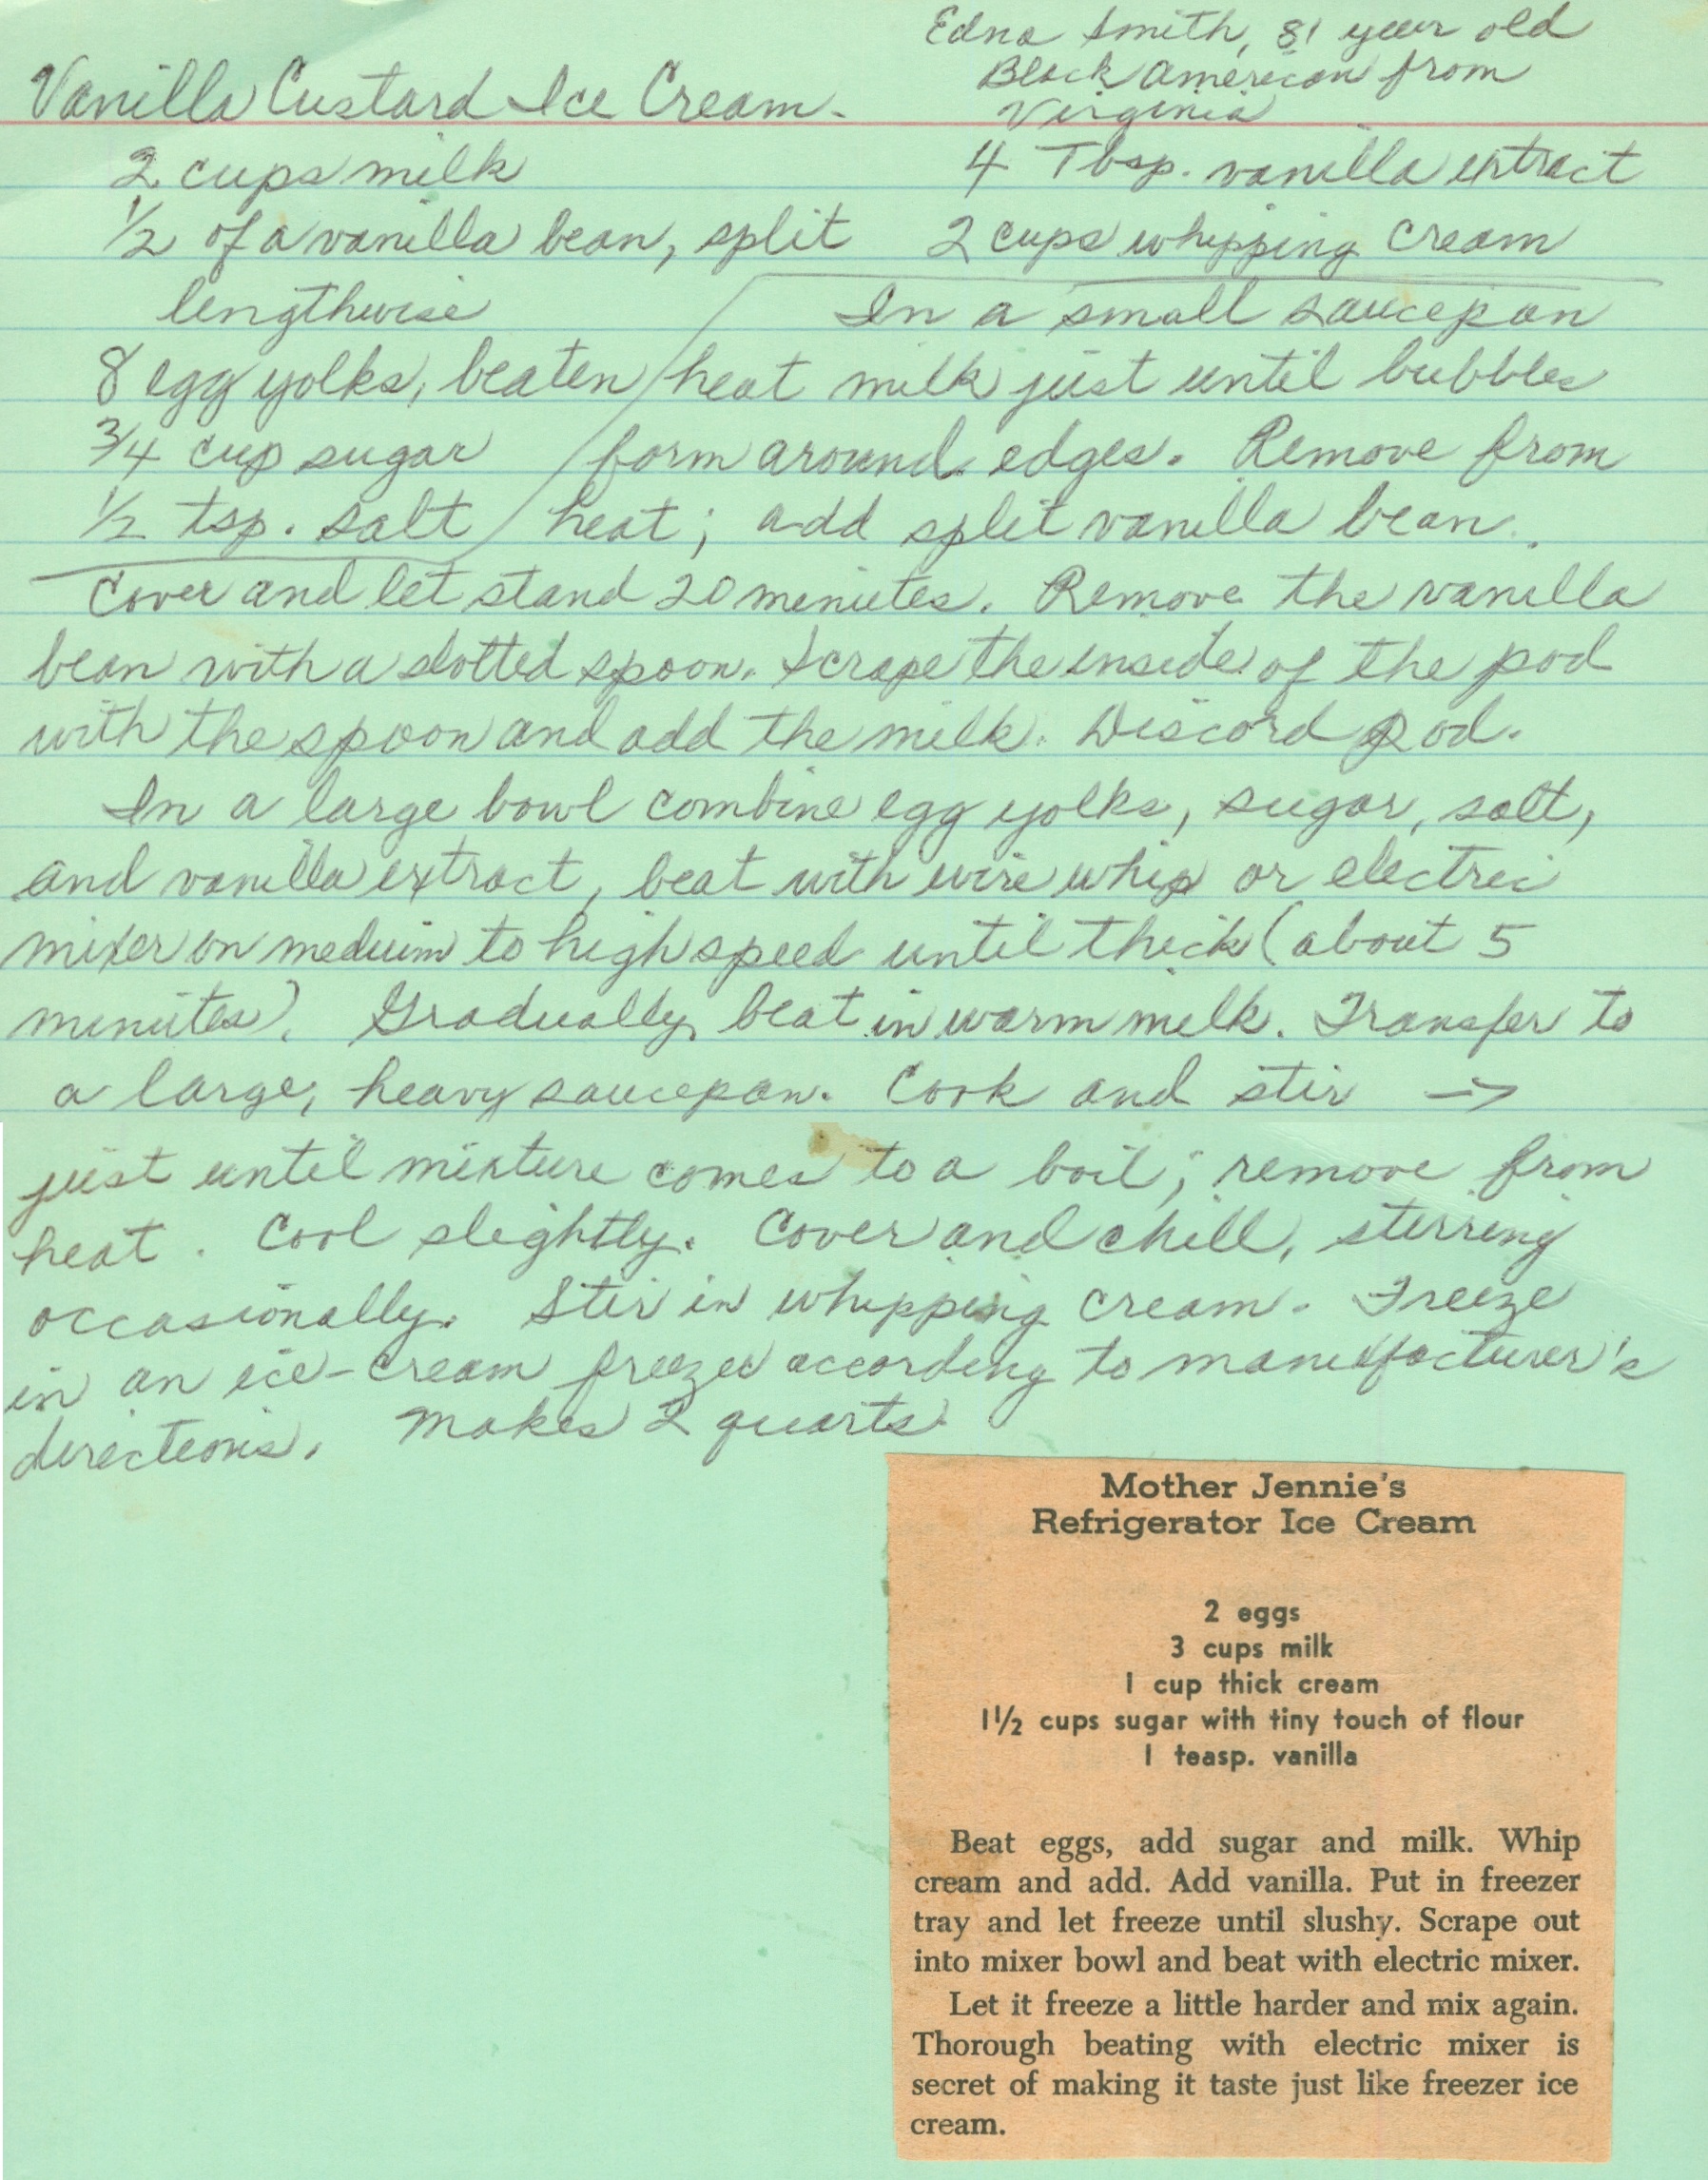 Edna Smith, 81 year old
Black American from
Virginia
Vanilla Custard Ice Cream.
2 cups milk
1/2 of a vanilla bean, split
lengthwise
8 egg yolks, beaten
3/4 cup sugar
1/2 tsp. salt
4 Tbsp. vanilla extract
2 cups whipping cream
In a small saucepan
heat milk just until bubbles
form around edges. Remove from
heat; add split vanilla bean.
Cover and let stand 20 minutes. Remove the vanilla
bean with a slotted spoon. Scrape the inside of the pod
with the spoon and add the milk. Discard pod.
In a large bowl combine egg yolks, sugar, salt,
and vanilla extract, beat with wire whip or electric
mixer on meduim to high speed until thick (about 5
minutes). Gradually beat in warm milk. Transfer to
a large, heavy saucepan. Cook and stir →
just until mixture comes to a boil; remove from
heat. Cool slightly. Cover and chill, stirring
occasionally. Stir in whipping cream. Freeze
in an ice-cream freezer according to manufacturer's
directions. Makes 2 quarts
Mother Jennie's
Refrigerator Ice Cream
2 eggs
3 cups milk
1 cup thick cream
1 1/2 cups sugar with tiny touch of flour
1 teasp. vanilla
Beat eggs, add sugar and milk. Whip
cream and add. Add vanilla. Put in freezer
tray and let freeze until slushy. Scrape out
into mixer bowl and beat with electric mixer.
Let it freeze a little harder and mix again.
Thorough beating with electric mixer is
secret of making it taste just like freezer ice
cream.